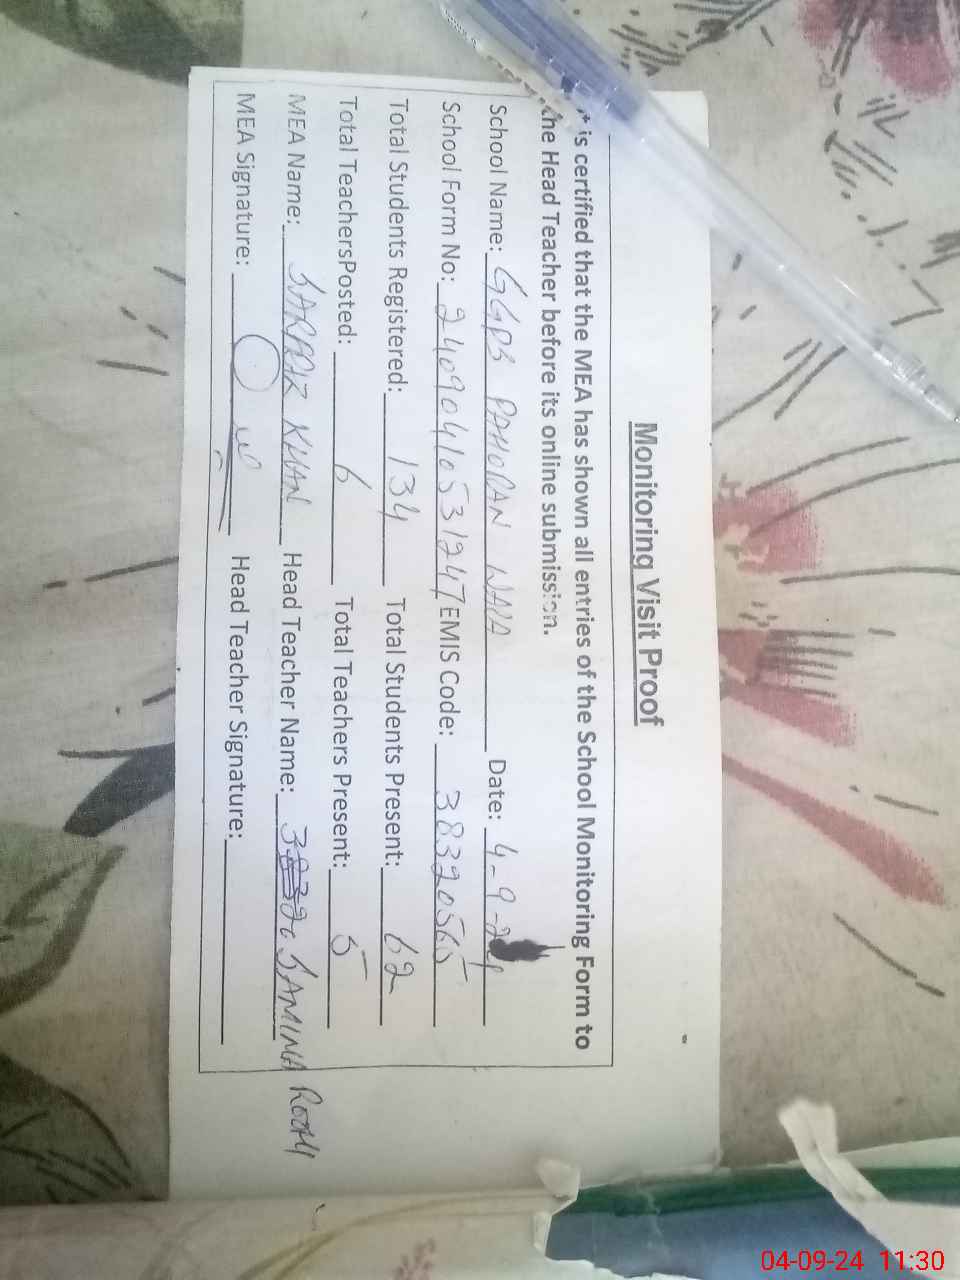 Monitoring Visit Proof
is certified that the MEA has shown all entries of the School Monitoring Form to
the Head Teacher before its online submission.
School Name: GGPS PAHORAN WALA Date: 4-9-24
School Form No: 24090410531247 EMIS Code: 38320565
Total Students Registered: 134 Total Students Present: 62
Total TeachersPosted: 6 Total Teachers Present: 5
MEA Name: SARFRAZ KHAN Head Teacher Name: SAMINA ROOHI
MEA Signature: Head Teacher Signature:
04-09-24 11:30